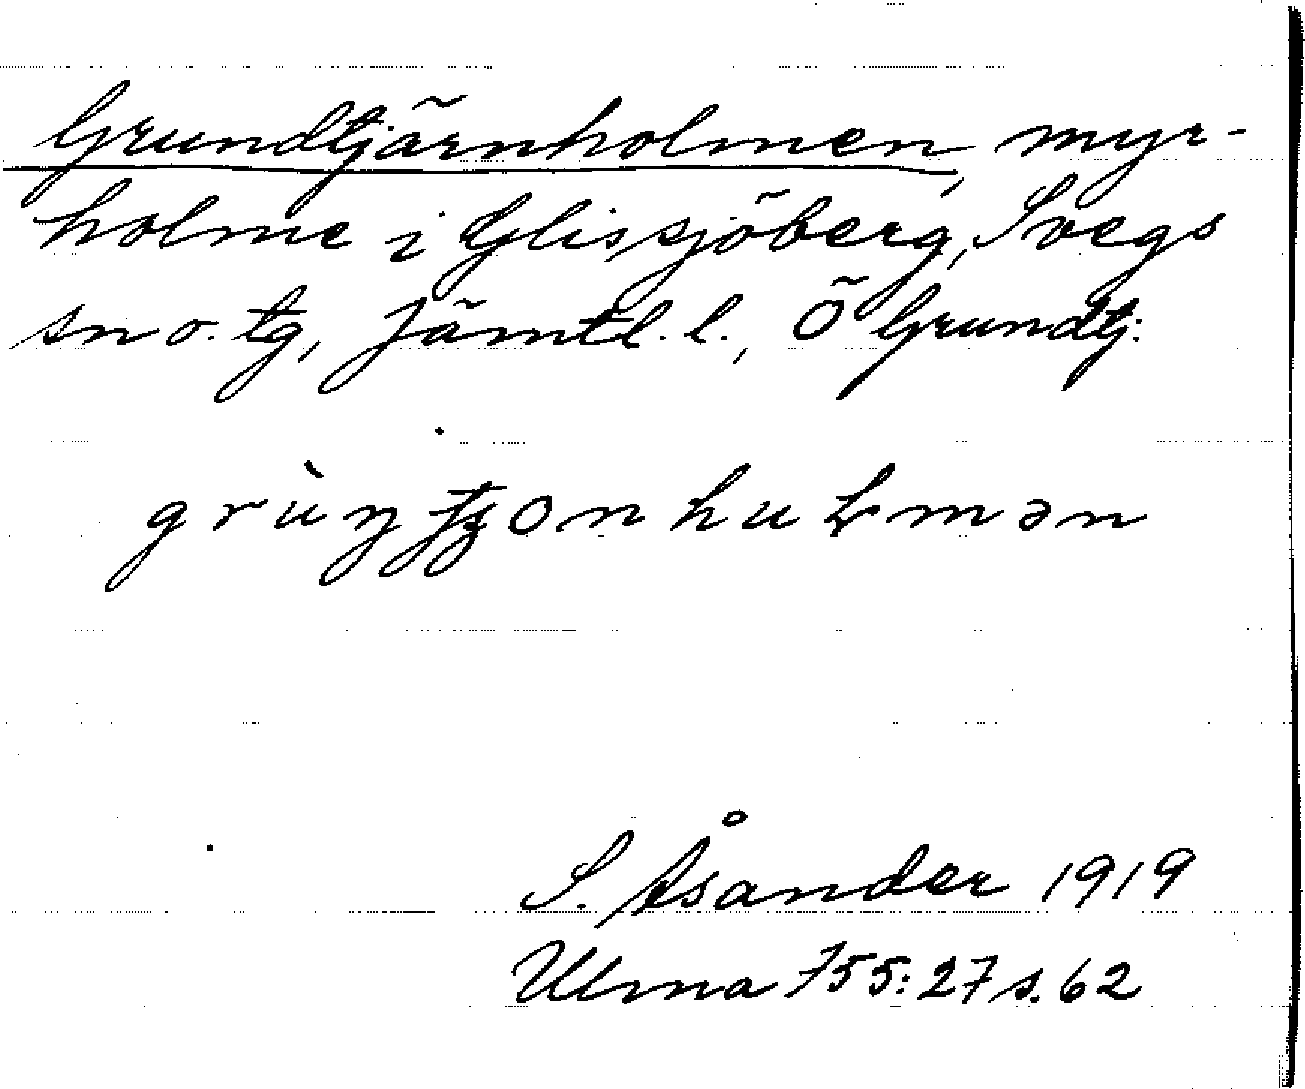 Grundtjärnholmen, myr-
holme i Glissjöberg, Svegs
sn o. tg, Jämtl. l., Ö Grundtj:
S. Åsander 1919
Ulma 755:27 s. 62